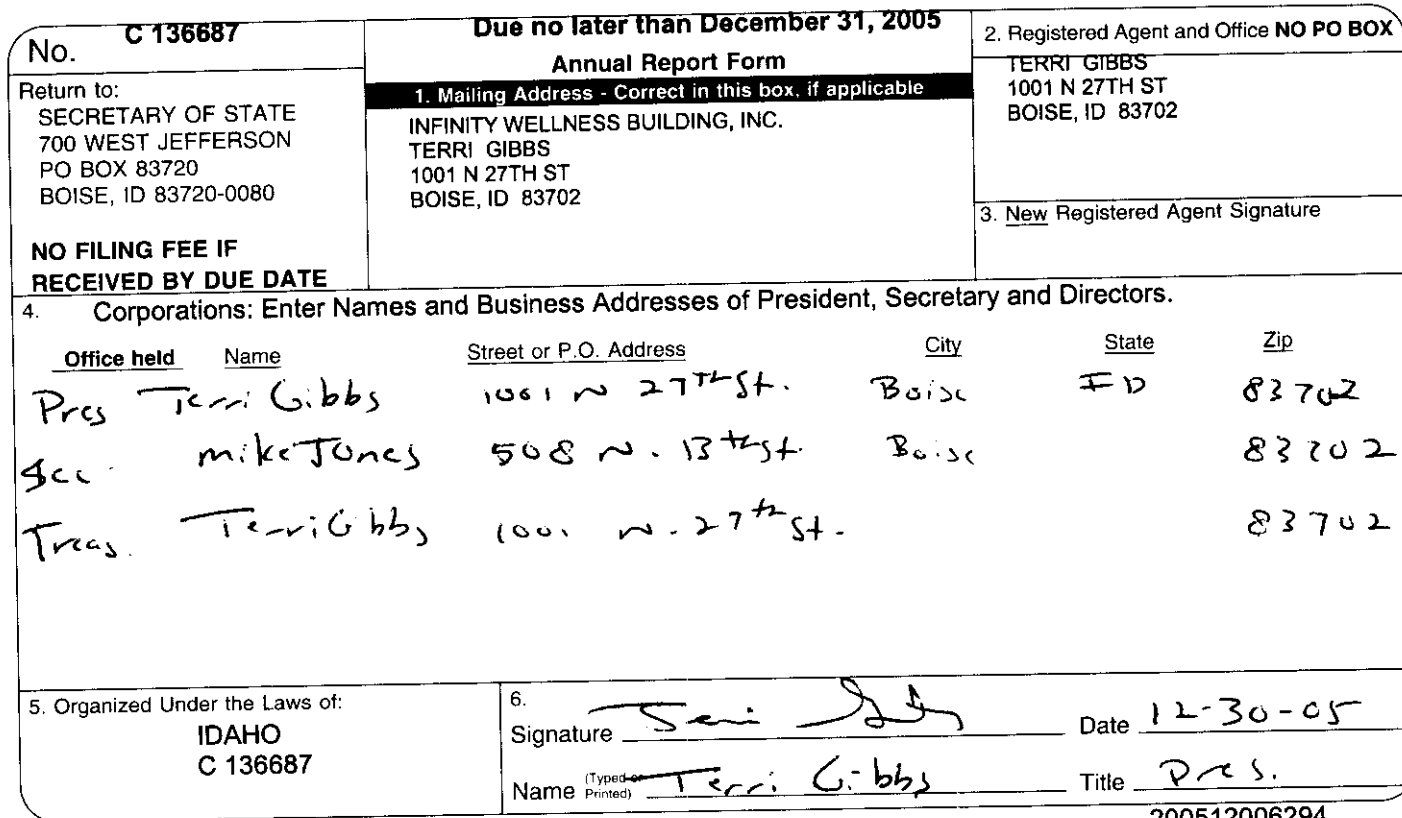 No. C 136687
Return to:
SECRETARY OF STATE
700 WEST JEFFERSON
PO BOX 83720
BOISE, ID 83720-0080
NO FILING FEE IF
RECEIVED BY DUE DATE
Due no later than December 31, 2005
Annual Report Form
1. Mailing Address - Correct in this box, if applicable
INFINITY WELLNESS BUILDING, INC.
TERRI GIBBS
1001 N 27TH ST
BOISE, ID 83702
2. Registered Agent and Office NO PO BOX
TERRI GIBBS
1001 N 27TH ST
BOISE, ID 83702
3. New Registered Agent Signature
4. Corporations: Enter Names and Business Addresses of President, Secretary and Directors.
Office held Name Street or P.O. Address City State Zip
Pres Terri Gibbs 1001 N 27TH St. Boise ID 83702
Sec. mike Jones 508 N. 13th st. Boise 83702
Treas. Terri Gibbs 1001 N. 27th St. 83702
5. Organized Under the Laws of:
IDAHO
C 136687
6.
Signature Terri Gibbs Date 12-30-05
Name (Typed or Printed) Terri Gibbs Title Pres.
200512006294